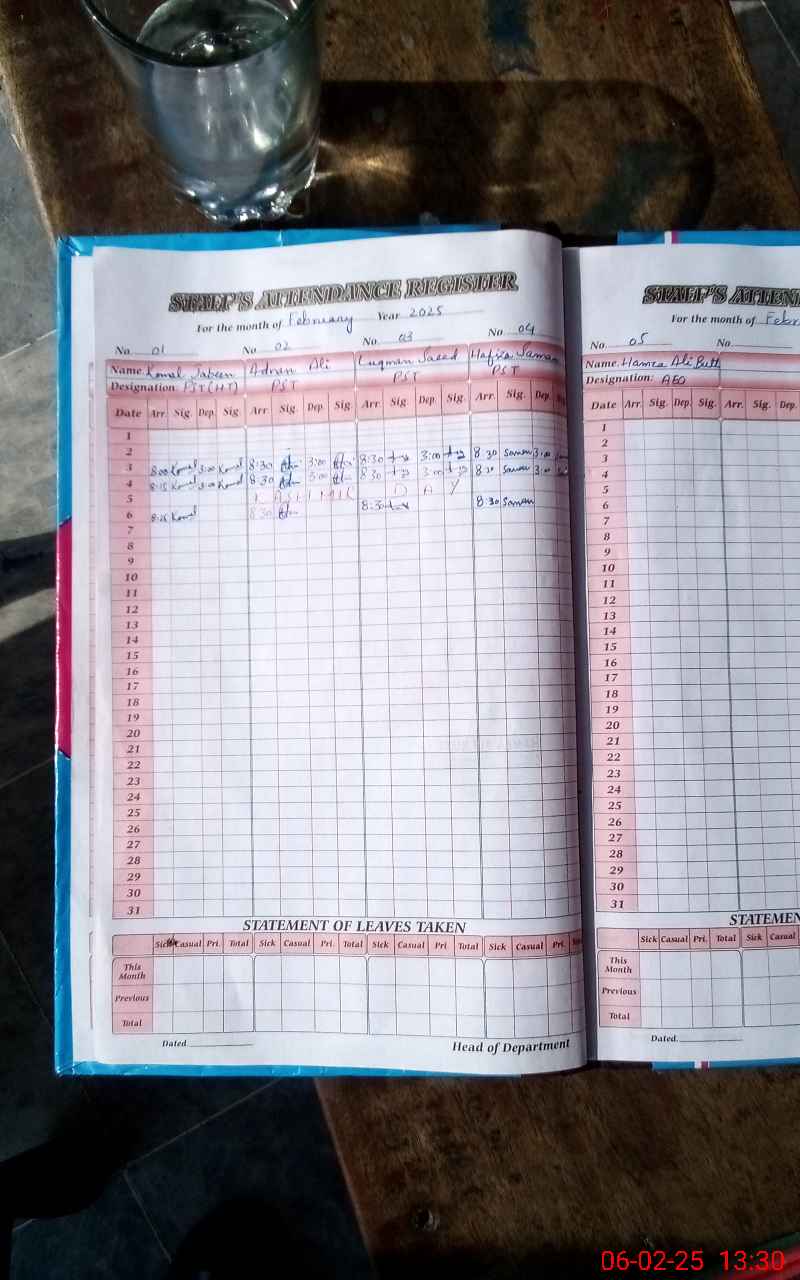 STAFF'S ATTENDANCE REGISTER
For the month of February Year 2025
No. 01 No. 02 No. 03 No. 04
Name. Komal Jabeen Adnan Ali Luqman Saeed Hafiza Saman
Designation: PST(HT) PST PST PST
Date Arr. Sig. Dep. Sig. Arr. Sig. Dep. Sig. Arr. Sig Dep Sig. Arr. Sig. Dep.
1
2
3 8:00 Komal 3:00 Komal 8:30 3:00 8:30 3:00 8:30 Saman 3:00
4 8:15 Komal 3:00 Komal 8:30 3:00 8:30 3:00 8:30 Saman 3:00
5 KASHMIR DAY
6 8:25 Komal 8:30 8:30 8:30 Saman
7
8
9
10
11
12
13
14
15
16
17
18
19
20
21
22
23
24
25
26
27
28
29
30
31
STATEMENT OF LEAVES TAKEN
Sick Casual Pri. Total Sick Casual Pri. Total Sick Casual Pri. Total Sick Casual Pri.
This Month
Previous
Total
Dated
Head of Department
STAFF'S ATTEN
For the month of Febr
No. 05 No
Name. Hamza Ali Butt
Designation: AEO
Date Arr. Sig. Dep. Sig. Arr. Sig. Dep.
1
2
3
4
5
6
7
8
9
10
11
12
13
14
15
16
17
18
19
20
21
22
23
24
25
26
27
28
29
30
31
STATEMEN
Sick Casual Pri. Total Sick Casual
This Month
Previous
Total
Dated.
06-02-25 13:30